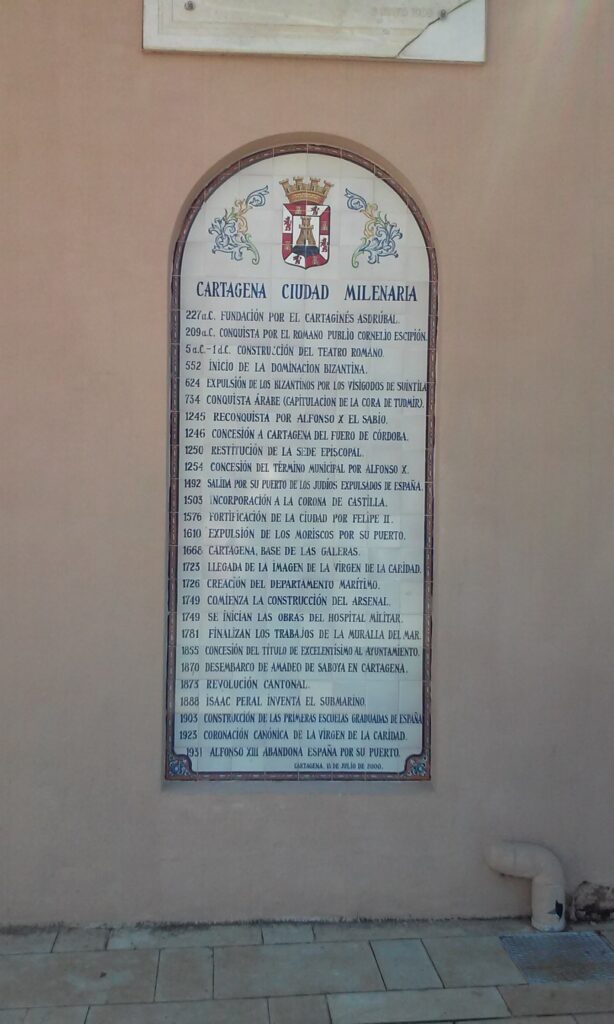 CARTAGENA CIUDAD MILENARIA
227a.C. FUNDACIÓN POR EL CARTAGINÉS ASDRÚBAL.
209a.C. CONQUISTA POR EL ROMANO PUBLIO CORNELIO ESCIPIÓN.
5a.C.-1d.C. CONSTRUCCIÓN DEL TEATRO ROMANO.
552 INICIO DE LA DOMINACION BIZANTINA.
624 EXPULSIÓN DE LOS BIZANTINOS POR LOS VISIGODOS DE SUINTILA
734 CONQUISTA ÁRABE (CAPITULACION DE LA CORA DE TUDMIR).
1245 RECONQUISTA POR ALFONSO X EL SABIO.
1246 CONCESIÓN A CARTAGENA DEL FUERO DE CÓRDOBA.
1250 RESTITUCIÓN DE LA SEDE EPISCOPAL.
1254 CONCESIÓN DEL TÉRMINO MUNICIPAL POR ALFONSO X.
1492 SALIDA POR SU PUERTO DE LOS JUDÍOS EXPULSADOS DE ESPAÑA.
1503 INCORPORACIÓN A LA CORONA DE CASTILLA.
1576 FORTIFICACIÓN DE LA CIUDAD POR FELIPE II.
1610 EXPULSIÓN DE LOS MORISCOS POR SU PUERTO.
1668 CARTAGENA, BASE DE LAS GALERAS.
1723 LLEGADA DE LA IMAGEN DE LA VIRGEN DE LA CARIDAD.
1726 CREACIÓN DEL DEPARTAMENTO MARÍTIMO.
1749 COMIENZA LA CONSTRUCCIÓN DEL ARSENAL.
1749 SE INICIAN LAS OBRAS DEL HOSPITAL MILITAR.
1781 FINALIZAN LOS TRABAJOS DE LA MURALLA DEL MAR.
1855 CONCESIÓN DEL TÍTULO DE EXCELENTÍSIMO AL AYUNTAMIENTO.
1870 DESEMBARCO DE AMADEO DE SABOYA EN CARTAGENA.
1873 REVOLUCIÓN CANTONAL.
1888 ISAAC PERAL INVENTA EL SUBMARINO.
1903 CONSTRUCCIÓN DE LAS PRIMERAS ESCUELAS GRADUADAS DE ESPAÑA
1923 CORONACIÓN CANÓNICA DE LA VIRGEN DE LA CARIDAD.
1931 ALFONSO XIII ABANDONA ESPAÑA POR SU PUERTO.
CARTAGENA, 15 DE JULIO DE 2000.